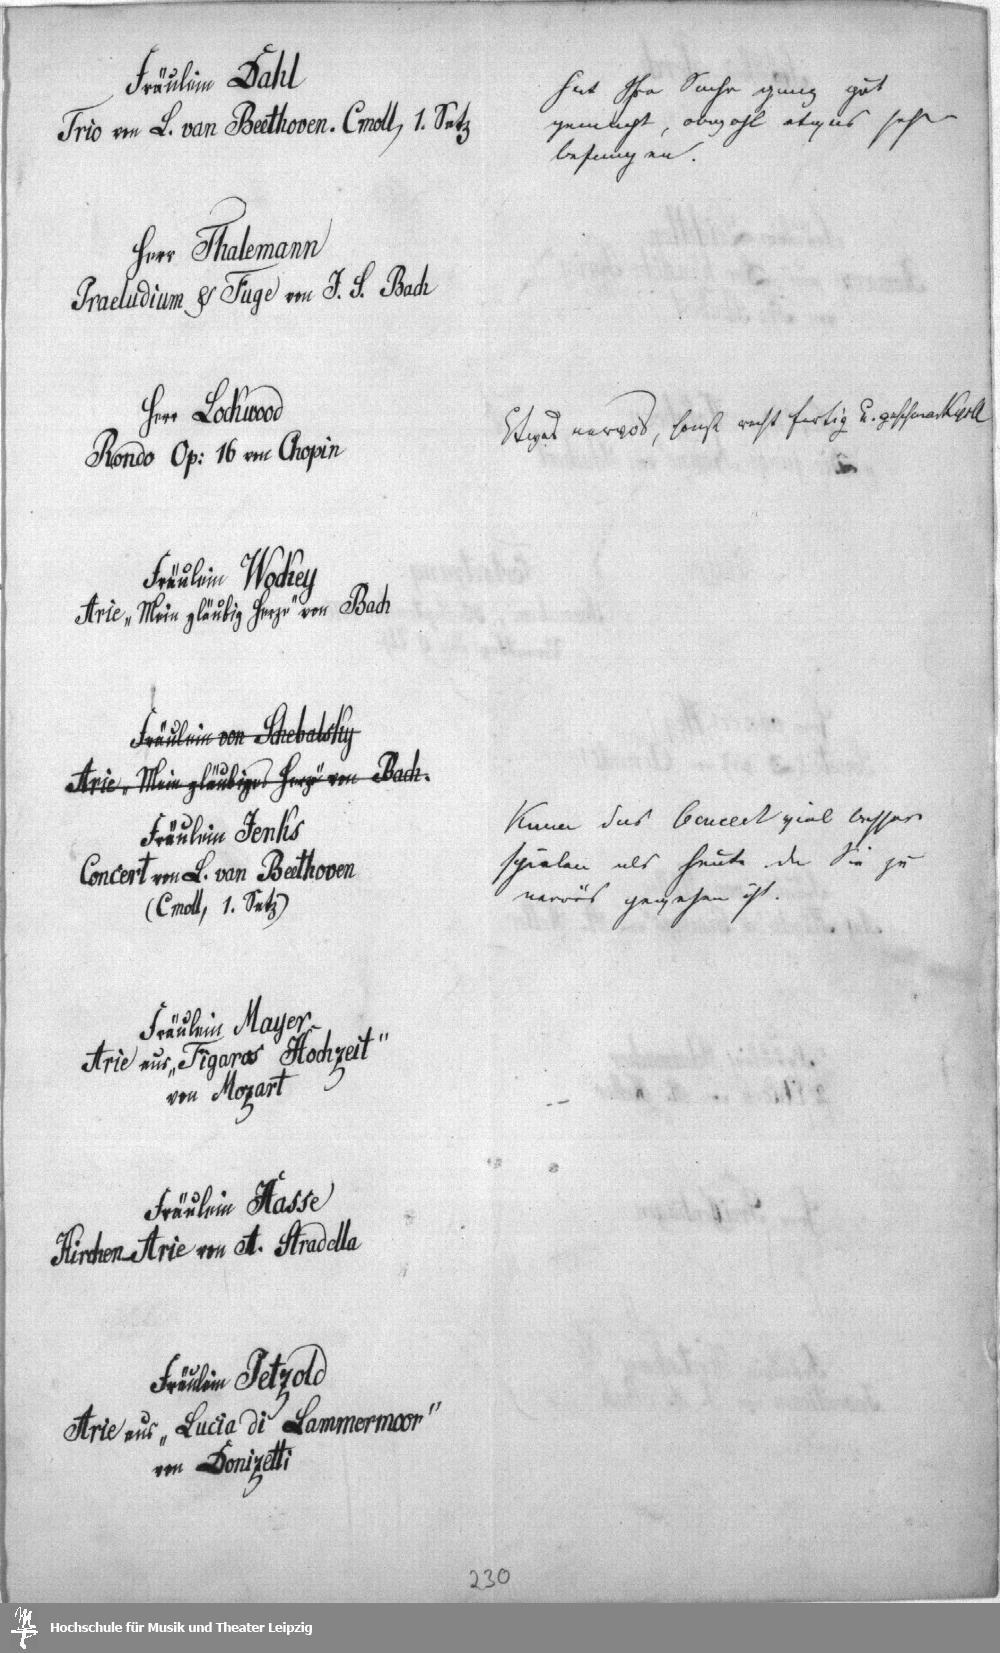 Fräulein Dahl
Trio von L. van Beethoven. Cmoll, 1. Satz
hat Ihre Sache ganz gut
gemacht, obwohl etwas sehr
befangen.
Herr Thalemann
Praeludium & Fuge von J. S. Bach
Herr Lockwood
Rondo Op: 16 von Chopin
Etwas nervös, sonst recht fertig u. geschmackvoll
Fräulein Wockey
Arie „Mein gläubig Herze" von Bach
Fräulein von Schebalsky
Arie „Mein gläubiges Herz" von Bach.
Fräulein Jenks
Concert von L. van Beethoven
(Cmoll, 1. Satz)
Kann das Concert viel besser
spielen als heute da Sie zu
nervös gewesen ist.
Fräulein Mayer
Arie aus „Figaros Hochzeit"
von Mozart
Fräulein Hasse
Kirchen-Arie von A. Stradella
Fräulein Petzold
Arie aus „Lucia di Lammermoor"
von Donizetti
230
Hochschule für Musik und Theater Leipzig